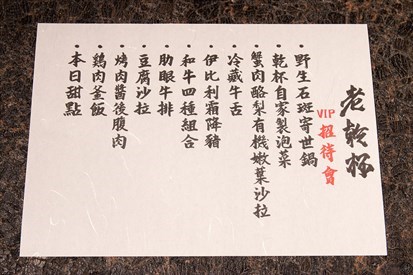 老乾杯
VIP招待會
・野生石斑寄世鍋
・乾杯自家製泡菜
・蟹肉酪梨有機嫩葉沙拉
・冷藏牛舌
・伊比利霜降豬
・和牛四種組合
・肋眼牛排
・豆腐沙拉
・烤肉醬後腹肉
・鶏肉釜飯
・本日甜點